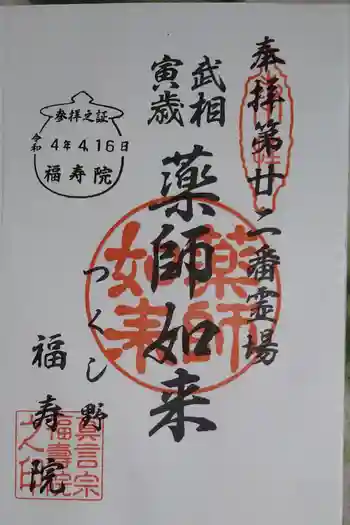 奉拝第廿二番霊場
武相
寅歳
薬師如来
薬師
如来
つくし野
福寿院
参拝之証
令和
4年4.16日
福寿院
真言宗
福壽院
之印